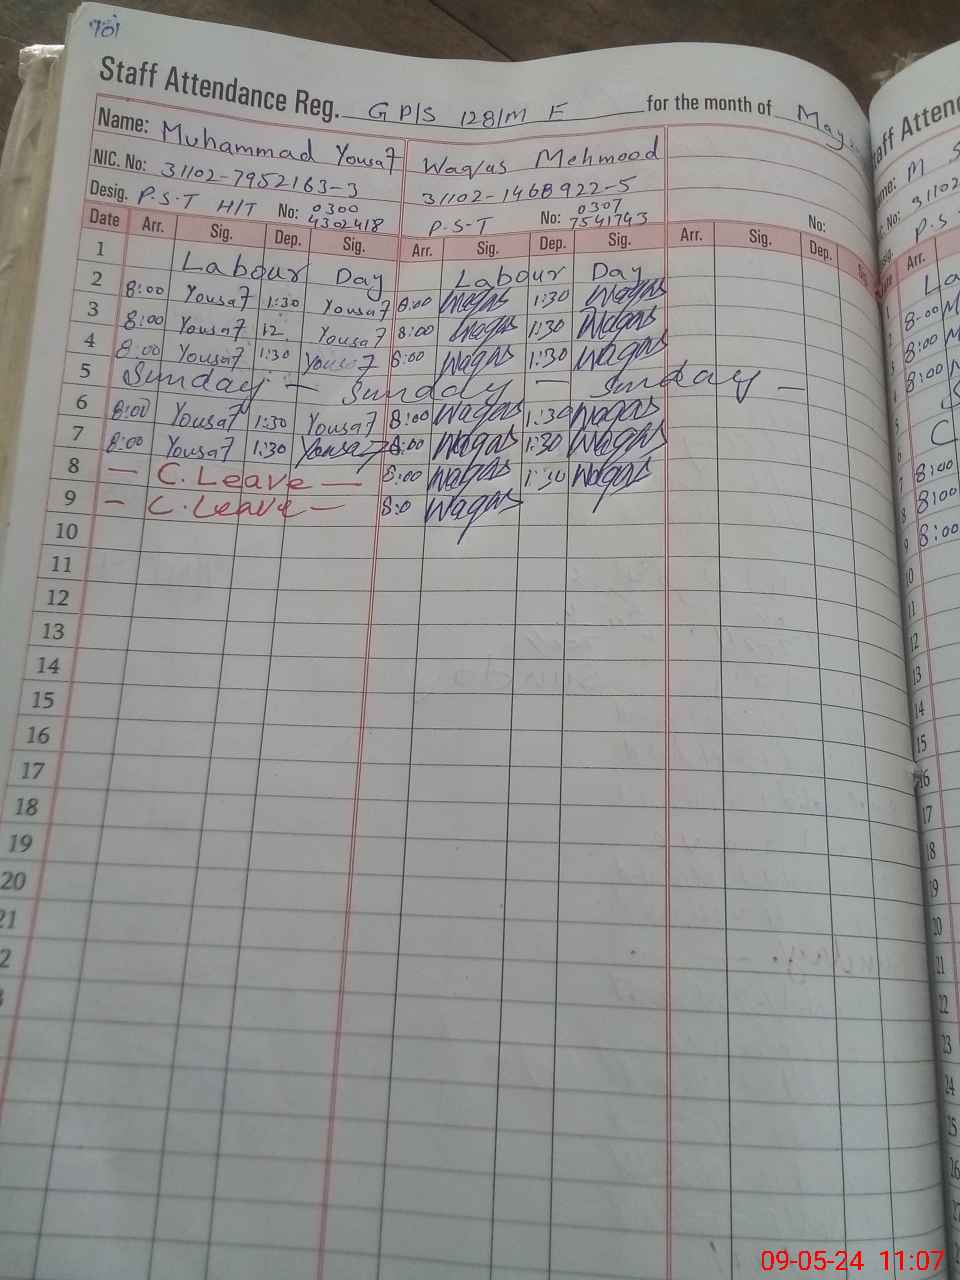 Staff Attendance Reg. G P/S 128/M F for the month of May
Name: Muhammad Yousaf Waqas Mehmood
NIC. No: 31102-7952163-3 31102-1468922-5
Desig. P.S.T H/T No: 0300 4302418 P.S.T No: 0307 7541743 No:
Date Arr. Sig. Dep. Sig. Arr. Sig. Dep. Sig. Arr. Sig. Dep.
1 Labour Day Labour Day
2 8:00 Yousaf 1:30 Yousaf 8:00 Waqas 1:30 Waqas
3 8:00 Yousaf 12 Yousaf 8:00 Waqas 1:30 Waqas
4 8:00 Yousaf 1:30 Yousaf 8:00 Waqas 1:30 Waqas
5 Sunday — Sunday — Sunday —
6 8:00 Yousaf 1:30 Yousaf 8:00 Waqas 1:30 Waqas
7 8:00 Yousaf 1:30 Yousaf 8:00 Waqas 1:30 Waqas
8 — C. Leave — 8:00 Waqas 1:30 Waqas
9 — C. Leave — 8:0 Waqas
10
11
12
13
14
15
16
17
18
19
20
21
2
3
aff Atten
me: M
No: 31102
P.S
Arr.
La
8:00
8:00
8:00
8:00
8:00
8:00
9
10
11
12
13
14
15
16
17
18
19
20
21
22
23
24
25
26
09-05-24 11:07